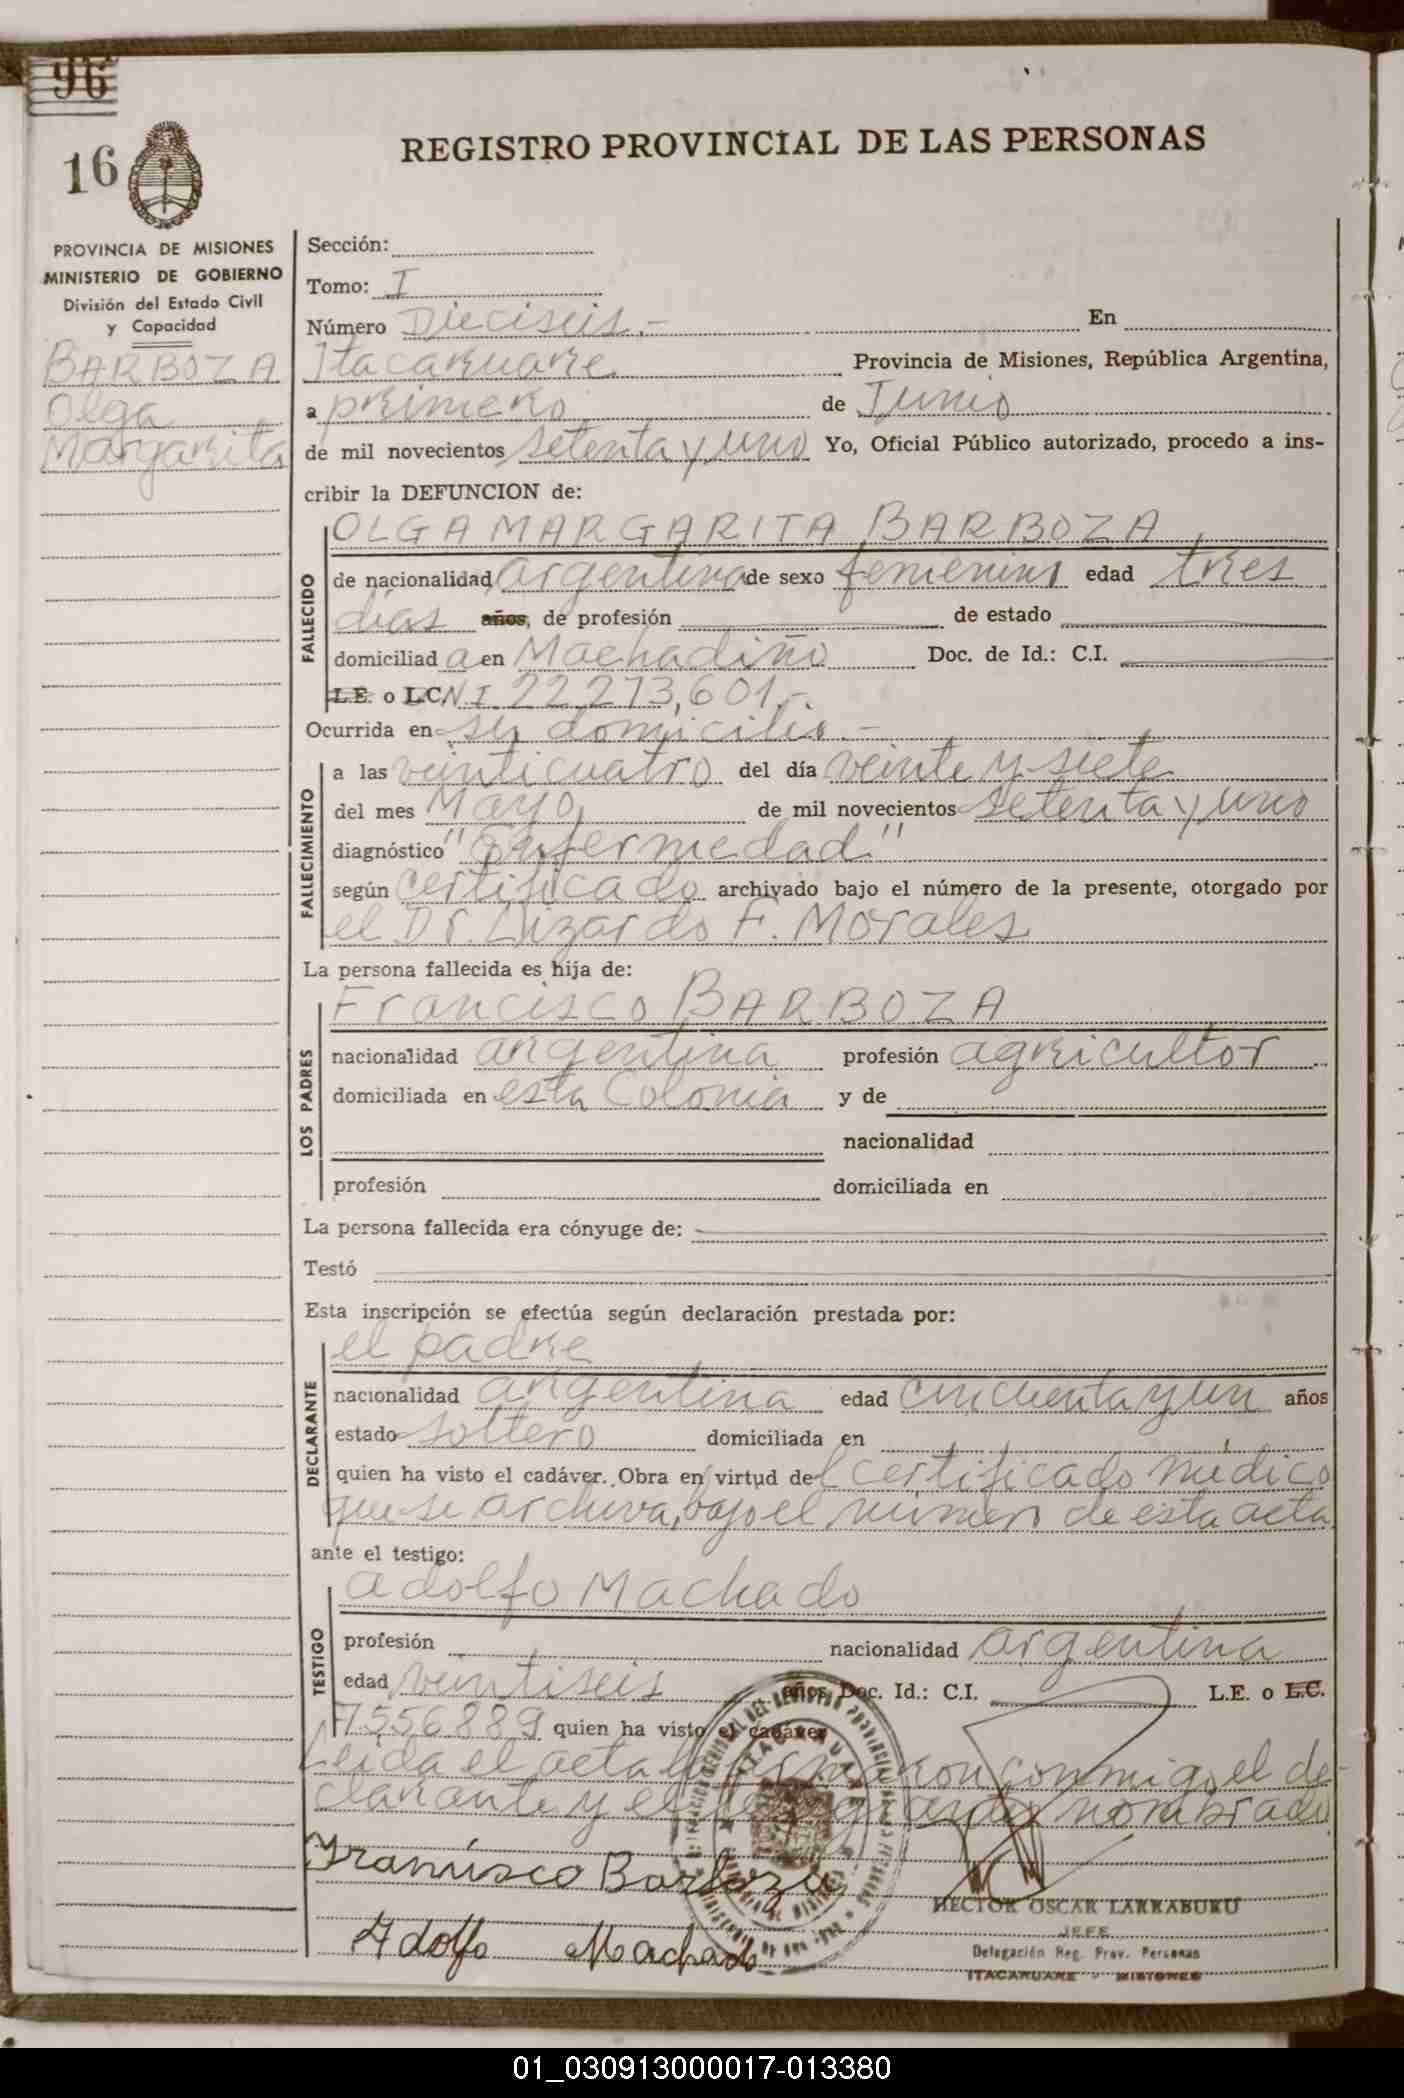 96
16
REGISTRO PROVINCIAL DE LAS PERSONAS
PROVINCIA DE MISIONES
MINISTERIO DE GOBIERNO
División del Estado Civil
y Capacidad
BARBOZA
Olga
Margarita
Sección:
Tomo: I
Número Dieciseis.- En
Itacaruare Provincia de Misiones, República Argentina,
a primero de Junio
de mil novecientos setenta y uno Yo, Oficial Público autorizado, procedo a ins-
cribir la DEFUNCION de:
FALLECIDO
OLGA MARGARITA BARBOZA
de nacionalidad argentina de sexo femenino edad tres
días años, de profesión de estado
domiciliad a en Machadiño Doc. de Id.: C.I.
L.E. o L.C. N.I. 22,273,601.-
Ocurrida en su domicilio.-
FALLECIMIENTO
a las veinticuatro del día veinte y siete
del mes Mayo, de mil novecientos setenta y uno
diagnóstico "Enfermedad"
según certificado archivado bajo el número de la presente, otorgado por
el Dr. Lizardo F. Morales
La persona fallecida es hija de:
LOS PADRES
Francisco BARBOZA
nacionalidad argentina profesión agricultor
domiciliada en esta Colonia y de
nacionalidad
profesión domiciliada en
La persona fallecida era cónyuge de:
Testó
Esta inscripción se efectúa según declaración prestada por:
DECLARANTE
el padre
nacionalidad argentina edad cincuenta y un años
estado soltero domiciliada en
quien ha visto el cadáver. Obra en virtud del certificado médico
que se archiva, bajo el número de esta acta
ante el testigo:
TESTIGO
Adolfo Machado
profesión nacionalidad argentina
edad veintiseis años, Doc. Id.: C.I. L.E. o L.C.
7556889 quien ha visto el cadáver
Leída el acta la firmaron conmigo, el de-
clarante y el nombrado
Francisco Barboza
HECTOR OSCAR LARRABURU
JEFE
Adolfo Machado
Delegación Reg. Prov. Personas
ITACARUARE - MISIONES
01_030913000017-013380